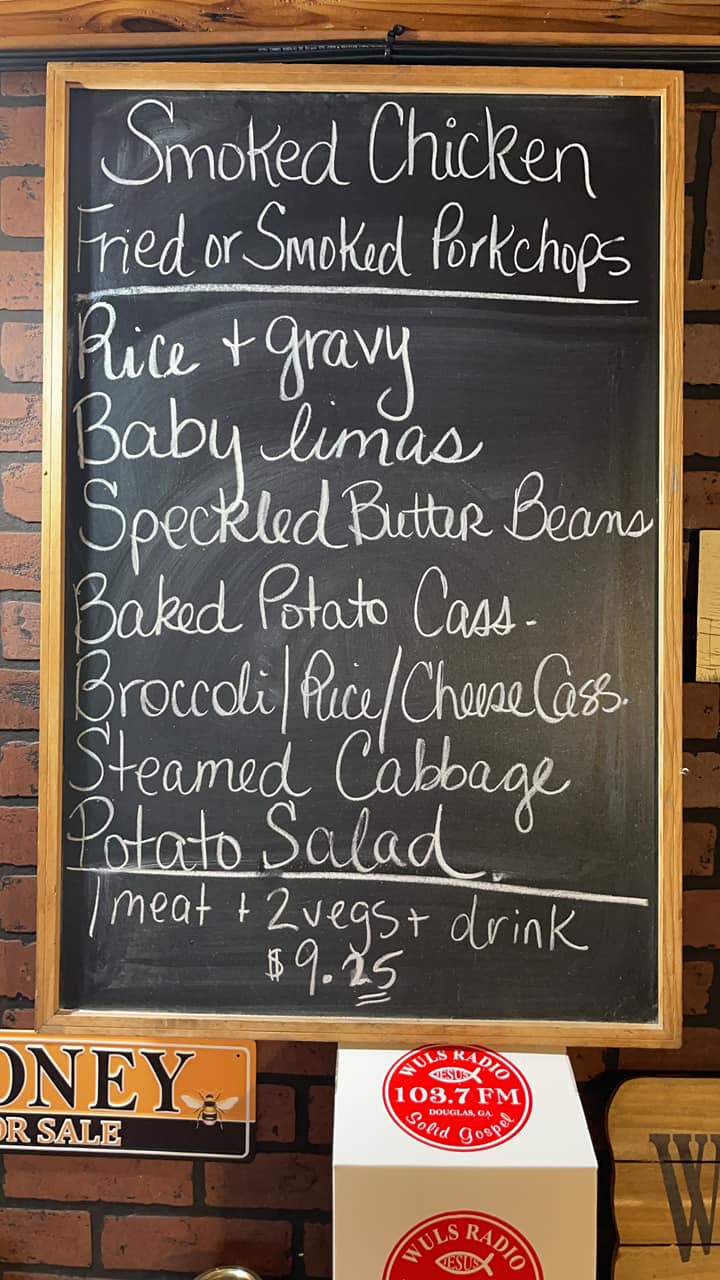 Smoked Chicken
Fried or Smoked Porkchops
Rice + gravy
Baby limas
Speckled Butter Beans
Baked Potato Cass.
Broccoli/Rice/Cheese Cass.
Steamed Cabbage
Potato Salad.
1 meat + 2 vegs + drink
$9.25
ONEY
OR SALE
WULS RADIO
JESUS
103.7 FM
DOUGLAS, GA.
Solid Gospel
W
WULS RADIO
JESUS